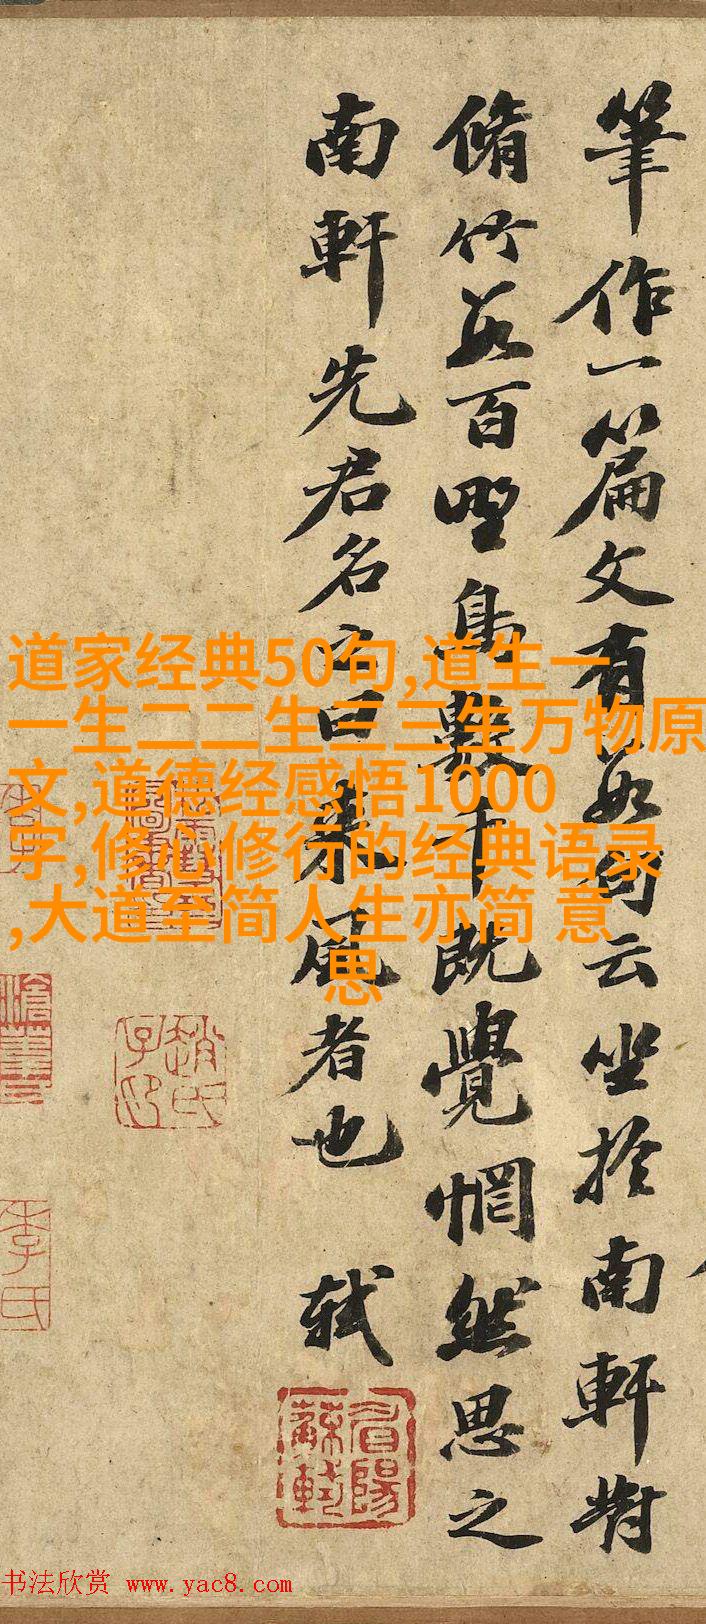 筆作一篇文有如何云坐於南軒對
脩竹數百野鳥數千既覺惘然思之
南軒先君名之曰來風者也
軾
道家经典50句,道生一
一生二二生三三生万物原
文,道德经感悟1000
字,修心修行的经典语录
,大道至简人生亦简 意
思
眉陽
蘇軾
趙氏
子印
李氏
书法欣赏 www.yac8.com